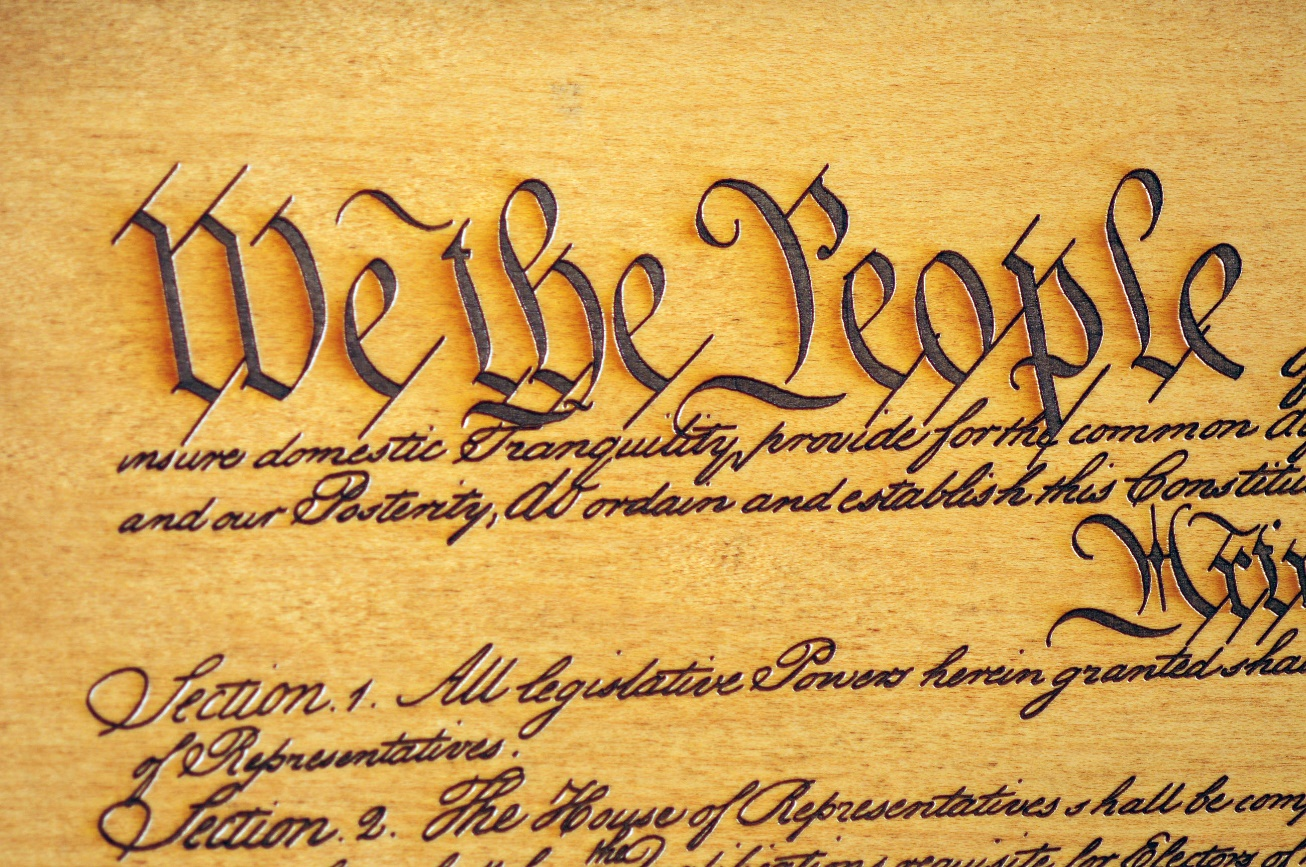 We the People
insure domestic Tranquility, provide for the common
and our Posterity, do ordain and establish this
Section. 1. All legislative Powers herein granted
of Representatives.
Section. 2. The House of Representatives shall be
the
requisite for Electors of